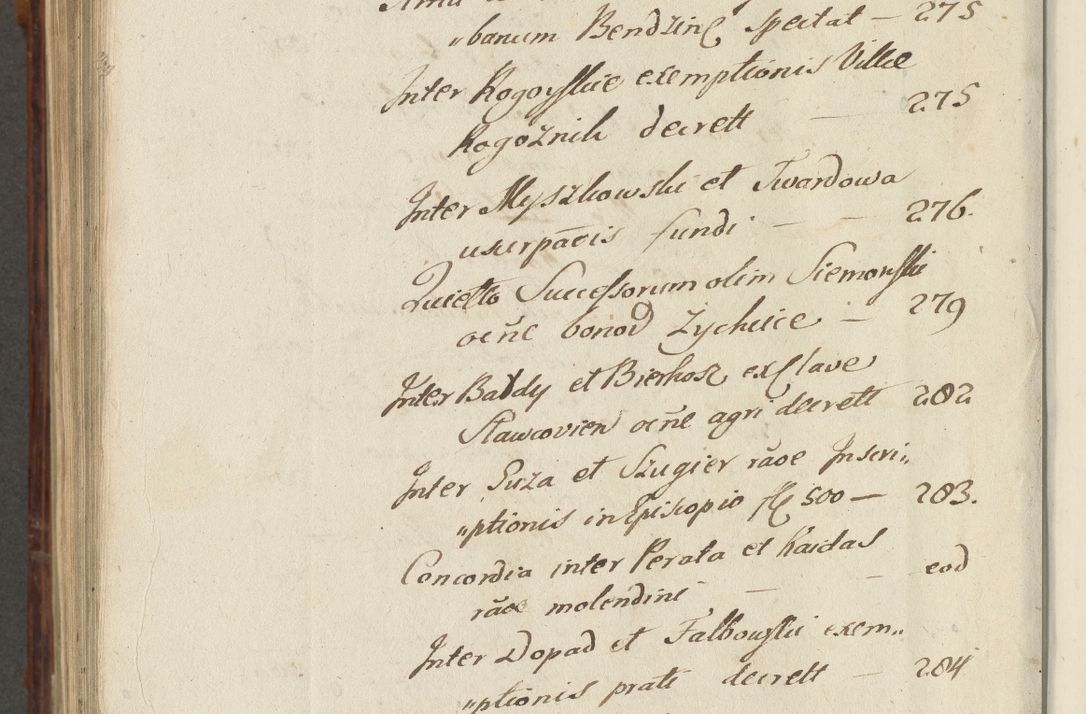 „banum Bendzinẽ spectat — 275
Inter Rogoyskie exemptionis Villæ
Rogoźnik decrett — 275
Inter Myszkowski et Twardowa
usurpãois fundi — — 276.
Quietto Successorum olim Siemoński
ocñe bonoȓ Zychcice — 279
Inter Baldy et Bierkosz ex Clave
Slawcovien ocñe agri decrett 282
Inter Suza et Szugier rãoe Inscri„
„ptionis in Episcopio fl 500 — 283.
Concordia inter Perata et Kaidas
rãoe molendini — — eod
Inter Dopad et Falbouski exem„
„ptionis prati decrett — 284